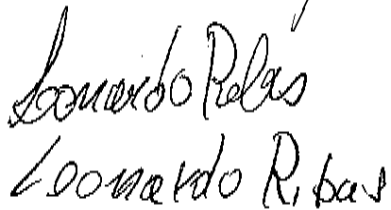 Leonardo Ribas
Leonardo Ribas